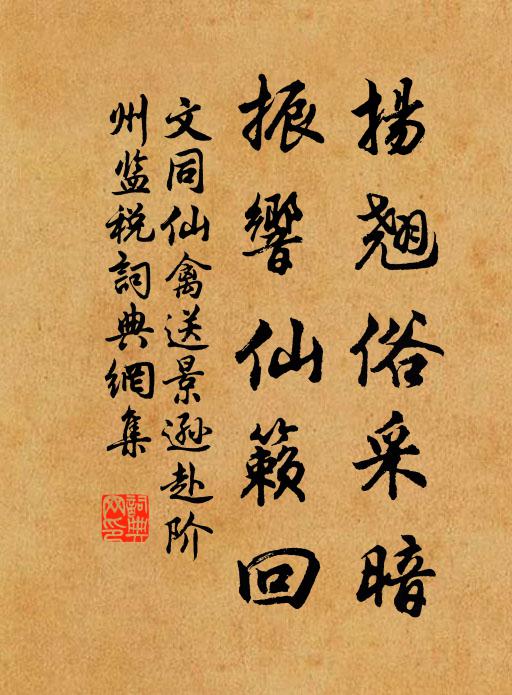 揚翹俗采暗
振響仙籟回
文同仙禽送景遜赴阶
州监税詞典網集
詞典
网印